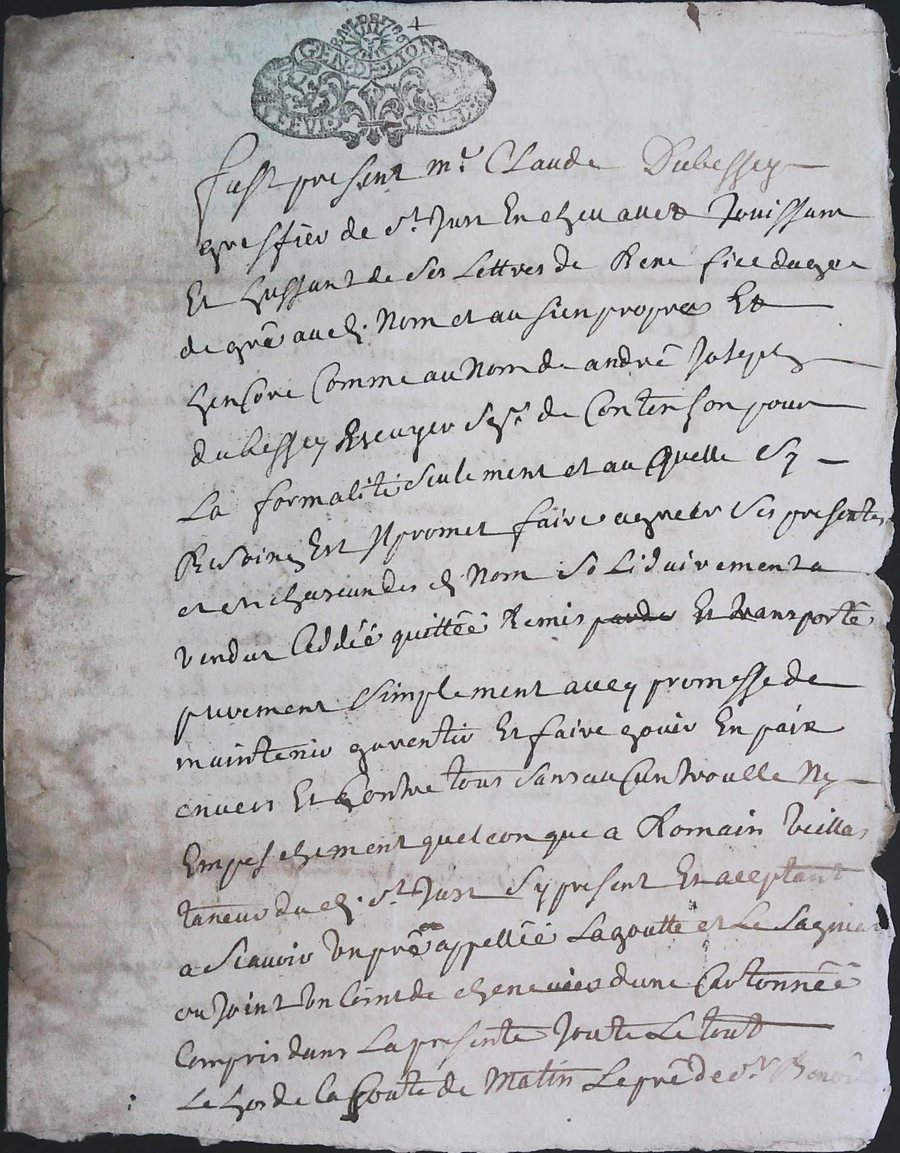 4
GEN DE LION
fust present mr Claude Dubessey
greffier de st Just En chevalled Jouissant
Et Jussant de ses Lettres de Bene fice dage
de gré aud. Nom et au sien propre Et
hencore Comme au Nom de andré Joseph
dubessey Escuyer Sgr de Contenson pour
La formalité seulement et au quelle sy
Besoing Est Jl promet faire agreer ses presentes
et en chascun des d Nom solidairement a
vendut Ceddéé quittéé Remis Et transporté
purement simplement avecq promesse de
maintenir garentir Et faire Jouir En paix
envers Et Contre tous sans au Cun trouble Ny
Empeschement quelconque a Romain Veilla
taneur dud. st Just sy present Et aceptant
a scavoir Un pré appelléé Lagoutte et Le
ou Joint Un Coint de chenevier dune Cartonnéé
Compris dans La presente Joute Le tout
Le de la Coute de Matin Le pré de sr Benoi